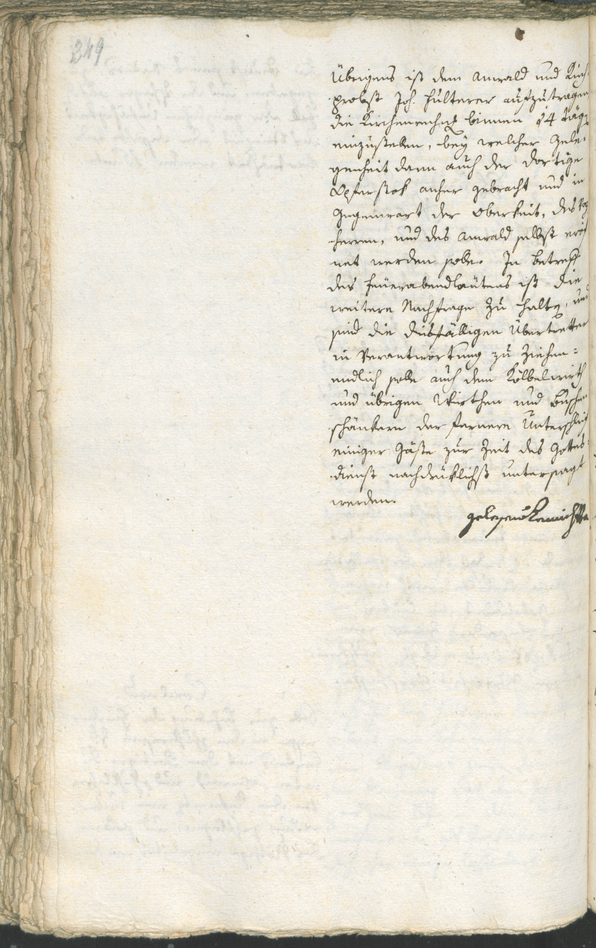 349
Übrigens ist dem Anwald und Kirch-
probst Joh. Hulterer aufzutragen
die Kirchenrechnung binnen 14 täg
einzugeben, bey welcher Gele-
genheit dann auch der dortige
Opferstok anher gebracht und in
Gegenwart der Obrigkeit, des
herren, und des Anwald selbst eröf
net werden solle. In betreff
des Feuerabendläutens ist die
weitere Nachfrage zu halten, und
sind die dießfälligen Übertretter
in Verantwortung zu ziehen:
endlich solle auch dem Kölbelwirth
und übrigen Wirthen und Buschen
schänkern der fernere Unterschleif
einiger Gäste zur Zeit des Gottes
dienst nachdrüklichst untersagt
werden.